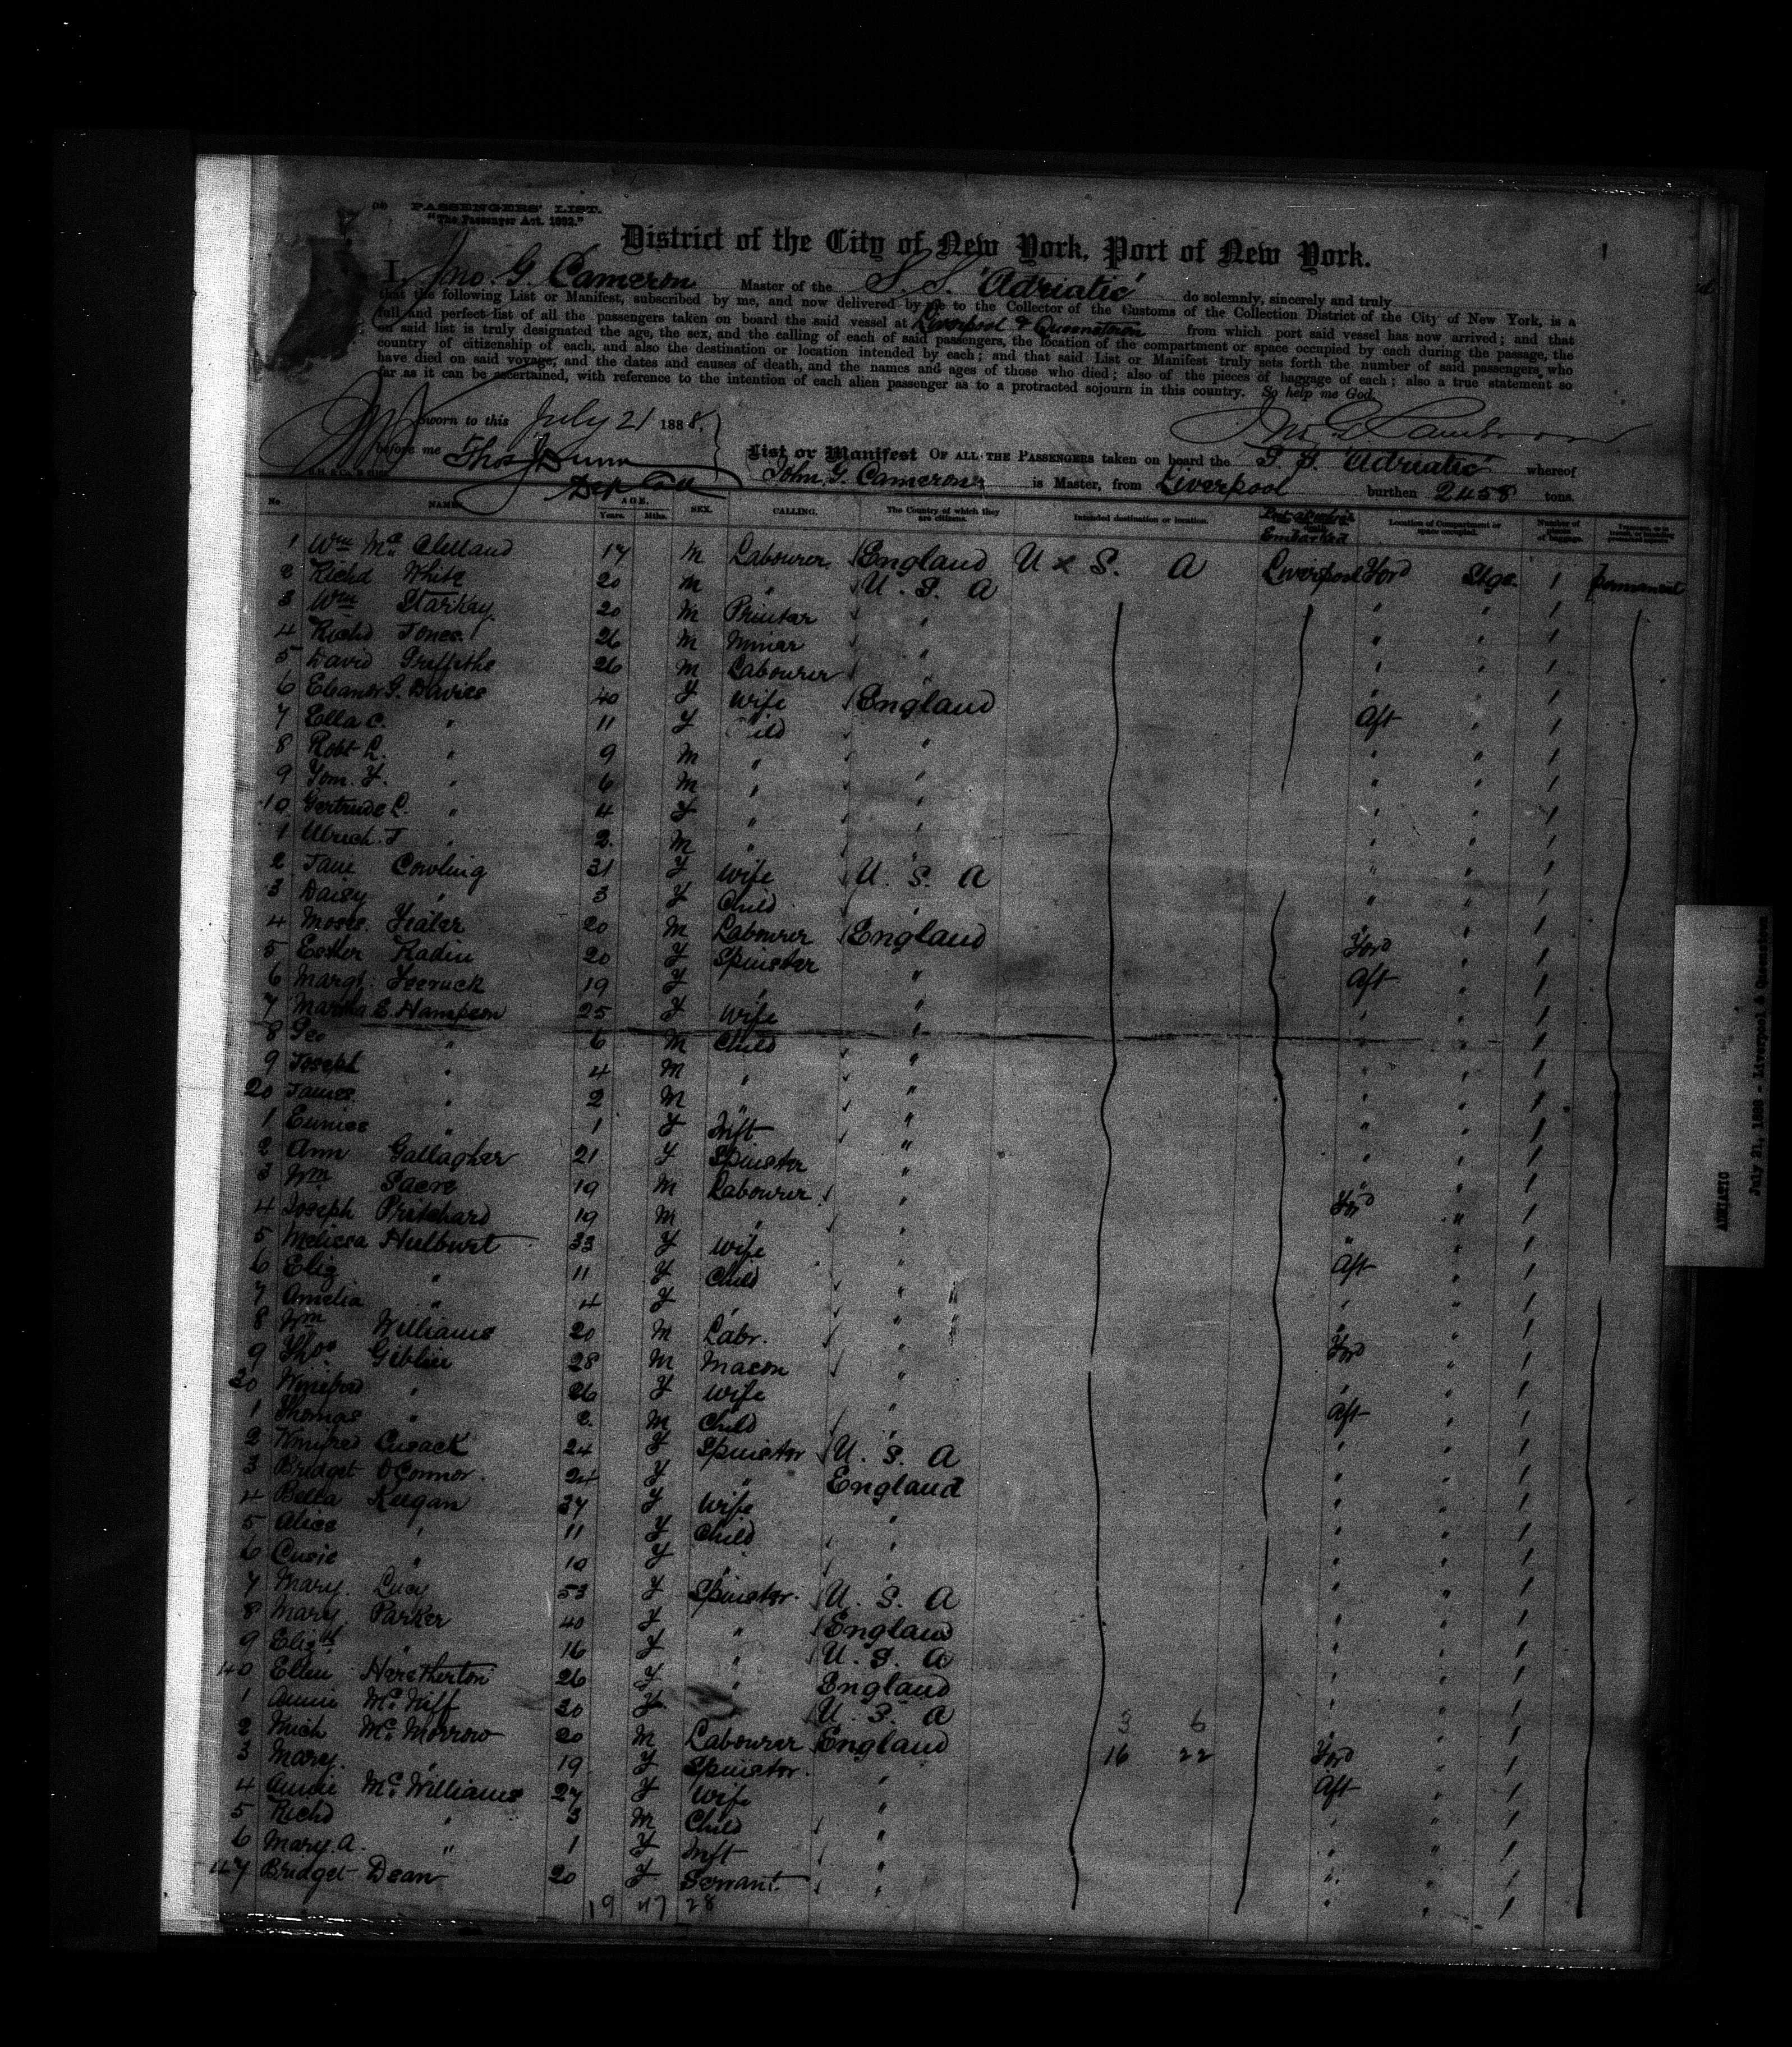 PASSENGERS' LIST.
"The Passenger Act. 1882."
District of the City of New York, Port of New York.
1
I, Jno. G. Cameron Master of the S. S. 'Adriatic' do solemnly, sincerely and truly
that the following List or Manifest, subscribed by me, and now delivered by me to the Collector of the Customs of the Collection District of the City of New York, is a
full and perfect list of all the passengers taken on board the said vessel at Liverpool & Queenstown from which port said vessel has now arrived; and that
on said list is truly designated the age, the sex, and the calling of each of said passengers, the location of the compartment or space occupied by each during the passage, the
country of citizenship of each, and also the destination or location intended by each; and that said List or Manifest truly sets forth the number of said passengers who
have died on said voyage, and the dates and causes of death, and the names and ages of those who died; also of the pieces of baggage of each; also a true statement so
far as it can be ascertained, with reference to the intention of each alien passenger as to a protracted sojourn in this country. So help me God.
Sworn to this July 21 1888. Jno G Cameron
before me Thos J Dunn
List or Manifest OF ALL THE PASSENGERS taken on board the S. S. 'Adriatic' whereof
John G. Cameron is Master, from Liverpool burthen 2458 tons.
No NAMES AGE. Years. Mths. SEX. CALLING. The Country of which they are citizens. Intended destination or location. Embarked Location of Compartment or space occupied. Number of pieces of baggage.
1 Wm Mc Clelland 17 M Labourer England U S. A Liverpool Ford Stge. 1 permanent
2 Richd White 20 M " U. S. A " " 1
3 Wm Starkay 20 M Printer " " " 1
4 Richd Jones 26 M Miner " " " 1
5 David Griffiths 26 M Labourer " " " 1
6 Eleanor G. Davies 40 F Wife England Aft " 1
7 Ella C. " 11 F Child " " " 1
8 Robt L. " 9 M " " " " 1
9 Tom. F. " 6 M " " " " 1
10 Gertrude L. " 4 F " " " " 1
1 Ulrich. J " 2 M " " " " 1
2 Jane Cowling 31 F Wife U. S. A " " 1
3 Daisy " 3 F Child " " " 1
4 Moses 20 M Labourer England Ford " 1
5 Esther Radin 20 F Spinster " Aft " 1
6 Margt. 19 F " " " " 1
7 Martha E. Hampson 25 F Wife " " " 1
8 Geo " 6 M Child " " " 1
9 Joseph " 4 M " " " " 1
20 James " 2 M " " " " 1
1 Eunice " 1 F Inft " " " 1
2 Ann Gallagher 21 F Spinster " " " 1
3 Wm 19 M Labourer " Ford " 1
4 Joseph Pritchard 19 M " " " " 1
5 Melissa Hulburt 33 F Wife " Aft " 1
6 Eliz " 11 F Child " " " 1
7 Amelia " 4 F " " " " 1
8 Wm Williams 20 M Labr. " Ford " 1
9 Thos Giblin 28 M Mason " " " 1
30 Winifred " 26 F Wife " Aft " 1
1 Thomas " 2 M Child " " " 1
2 Cusack 24 F Spinster U. S. A " " 1
3 Bridget O'Connor 24 F " England " " 1
4 Bella Keegan 37 F Wife " " " 1
5 Alice " 11 F Child " " " 1
6 Cusie " 10 F " " " " 1
7 Mary Lucy 53 F Spinster U. S. A " " 1
8 Mary Parker 40 F " England " " 1
9 Elizth " 16 F " U. S. A " " 1
40 Ellen 26 F " England " " 1
1 Annie Mc Niff 20 F " U. S. A " " 1
2 Mich Mc Morrow 20 M Labourer England Ford " 1
3 Mary " 19 F Spinster " Aft " 1
4 Annie Mc Williams 27 F Wife " " " 1
5 Richd " 3 M Child " " " 1
6 Mary A. " 1 F Inft " " " 1
47 Bridget Dean 20 F Servant " " " 1
3 6
16 22
19 47 28
ADRIATIC
July 21, 1888 - Liverpool & Queenstown